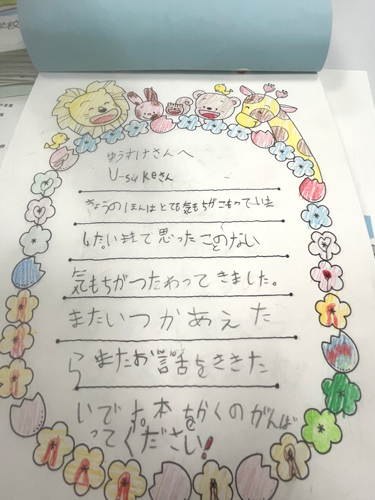 ゆうすけさんへ
U-sukeさん
きょうのほんはとても気もちがこもっていま
した。いままで思ったことのない
気もちがつたわってきました。
またいつかあえた
らまたお話をききた
いです。本をかくのがんば
ってください!